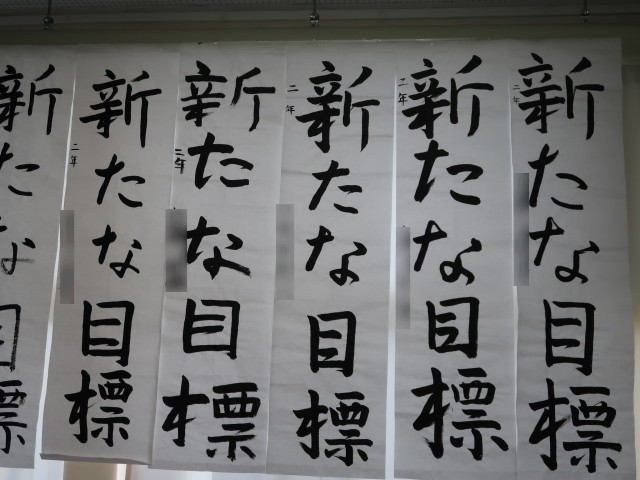 新たな目標
二年
新たな目標
二年
新たな目標
二年
新たな目標
二年
新たな目標
二年
新たな目標